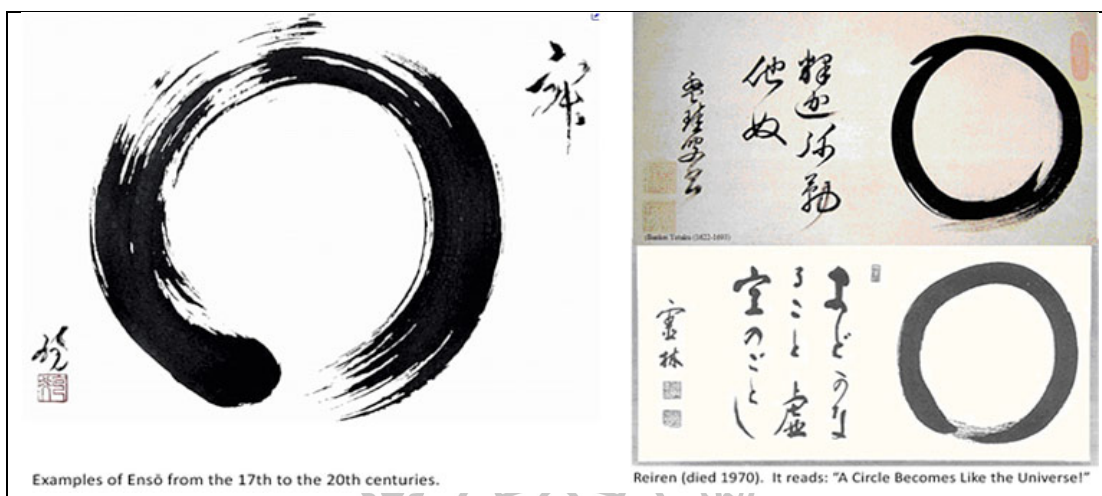 釋迦弥勒
他奴
Bankei Yotaku (1622-1693)
まどかな
ること虚
空のごとし
Examples of Ensō from the 17th to the 20th centuries.
Reiren (died 1970).  It reads: “A Circle Becomes Like the Universe!”